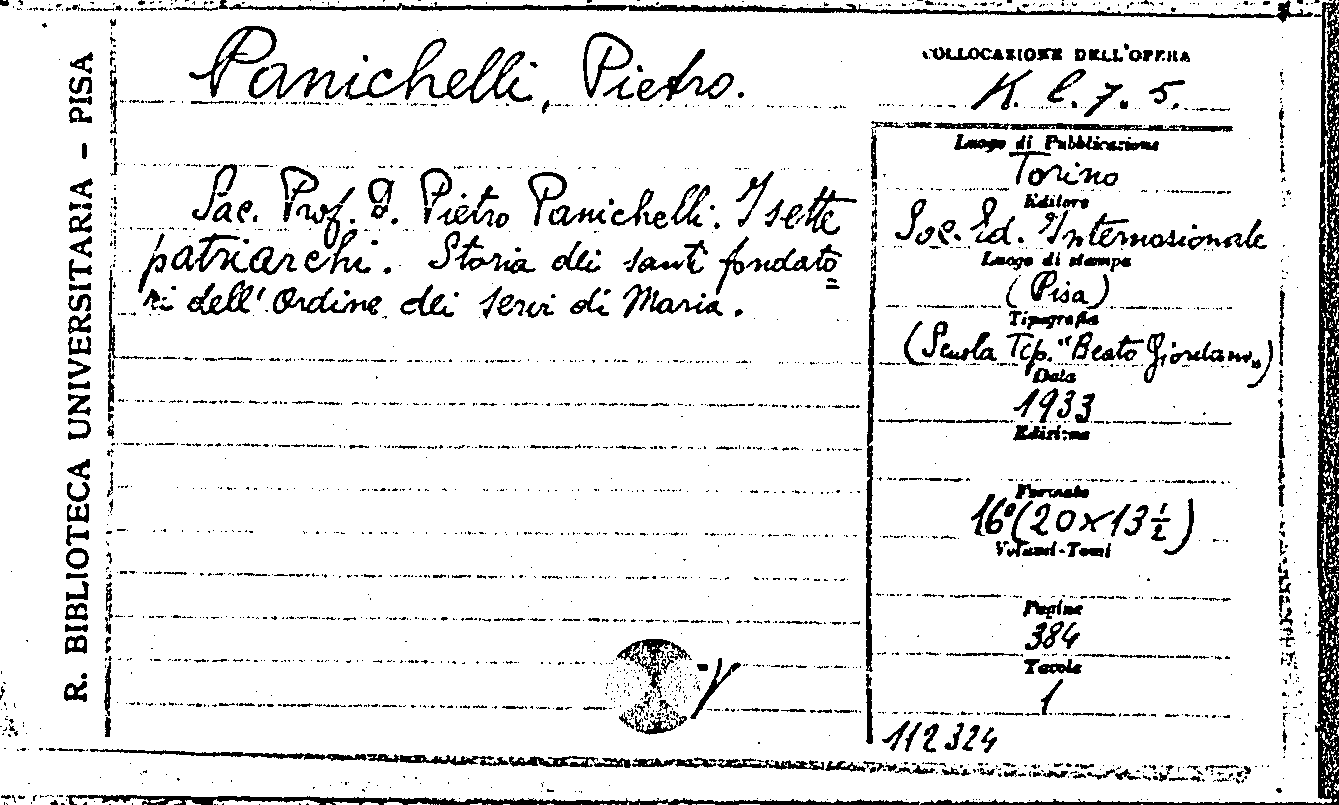 R. BIBLIOTECA UNIVERSITARIA – PISA
Panichelli, Pietro.
Sac. Prof. D. Pietro Panichelli. I sette
patriarchi. Storia dei santi fondato=
ri dell'Ordine dei Servi di Maria.
COLLOCAZIONE DELL'OPERA
K. l. 7. 5.
Luogo di Pubblicazione
Torino
Editore
Soc. Ed. Internazionale
Luogo di stampa
(Pisa)
Tipografia
(Scuola Tip. "Beato Giordano")
Data
1933
Edizione
Formato
16° (20 x 13 ½)
Volumi-Tomi
Pagine
384
Tavole
1
112324